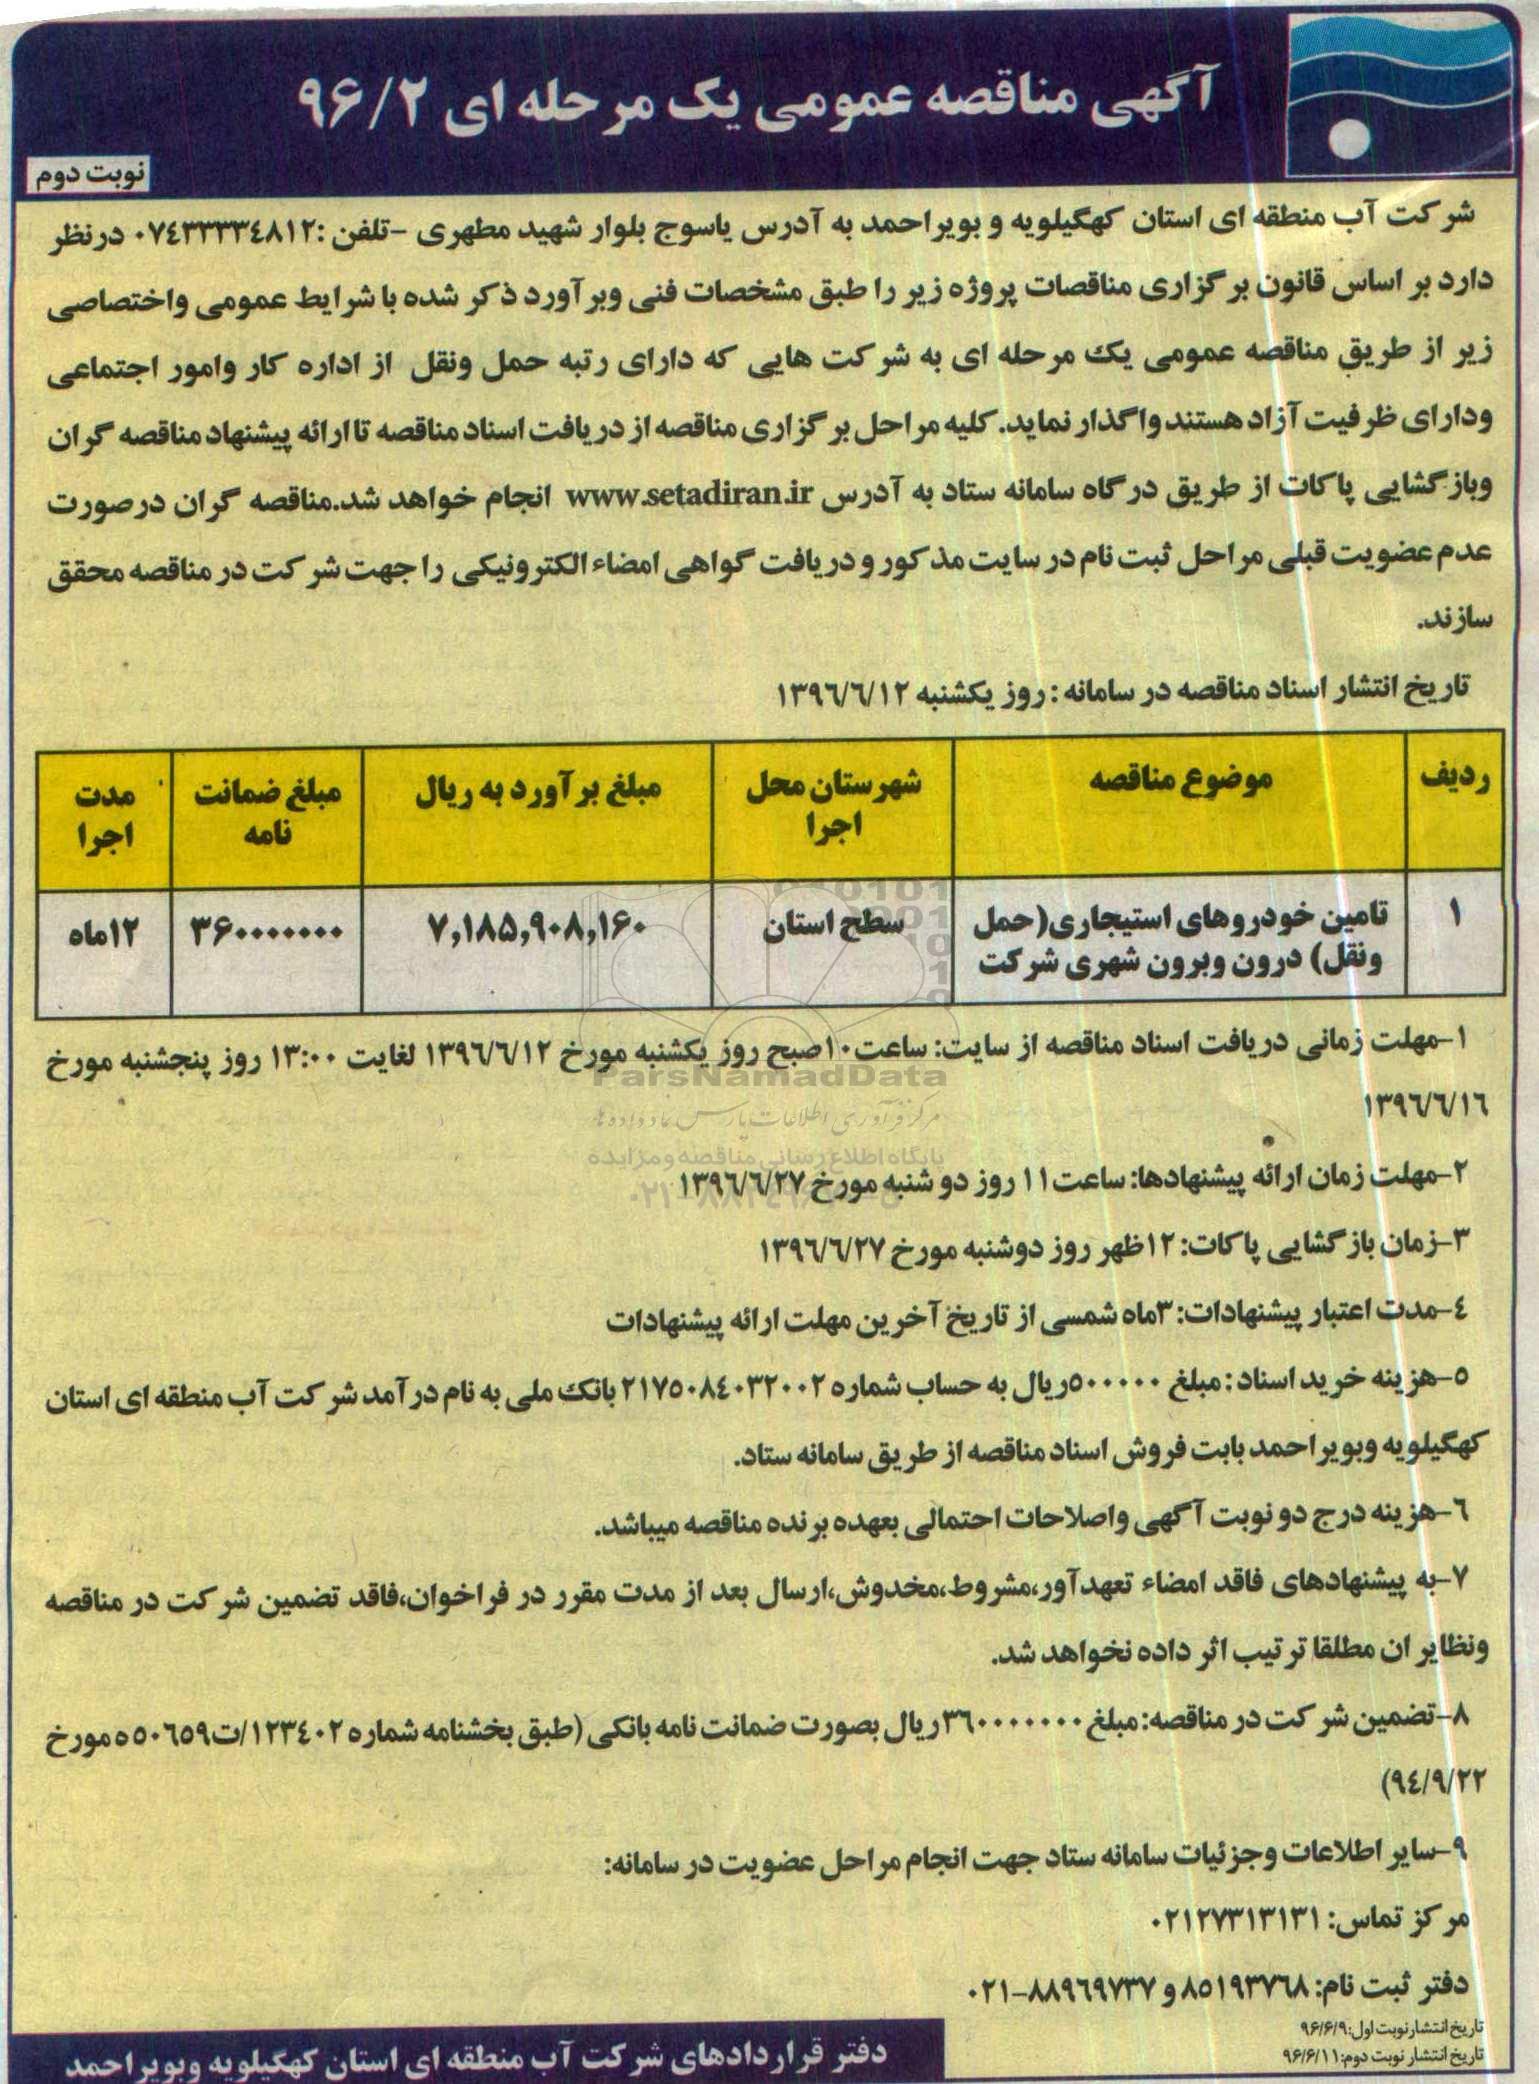 آگهی مناقصه عمومی یک مرحله ای ۹۶/۲
نوبت دوم
شرکت آب منطقه ای استان کهگیلویه و بویراحمد به آدرس یاسوج بلوار شهید مطهری -تلفن :۰۷٤۳۳۳۳٤۸۱۲ درنظر
دارد بر اساس قانون برگزاری مناقصات پروژه زیر را طبق مشخصات فنی وبرآورد ذکر شده با شرایط عمومی واختصاصی
زیر از طریق مناقصه عمومی یک مرحله ای به شرکت هایی که دارای رتبه حمل ونقل از اداره کار وامور اجتماعی
ودارای ظرفیت آزاد هستند واگذار نماید. کلیه مراحل برگزاری مناقصه از دریافت اسناد مناقصه تا ارائه پیشنهاد مناقصه گران
وبازگشایی پاکات از طریق درگاه سامانه ستاد به آدرس www.setadiran.ir انجام خواهد شد.مناقصه گران درصورت
عدم عضویت قبلی مراحل ثبت نام در سایت مذکور و دریافت گواهی امضاء الکترونیکی را جهت شرکت در مناقصه محقق
سازند.
تاریخ انتشار اسناد مناقصه در سامانه : روز یکشنبه ۱۳۹٦/٦/۱۲
ردیف موضوع مناقصه شهرستان محل اجرا مبلغ برآورد به ریال مبلغ ضمانت نامه مدت اجرا
۱ تامین خودروهای استیجاری(حمل ونقل) درون وبرون شهری شرکت سطح استان ۷,۱۸۵,۹۰۸,۱۶۰ ۳۶۰۰۰۰۰۰۰ ۱۲ماه
۱-مهلت زمانی دریافت اسناد مناقصه از سایت: ساعت۱۰صبح روز یکشنبه مورخ ۱۳۹٦/٦/۱۲ لغایت ۱۳:۰۰ روز پنجشنبه مورخ
۱۳۹٦/٦/۱٦
ParsNamadData
مرکز فرآوری اطلاعات پارس نماد داده ها
پایگاه اطلاع رسانی مناقصه و مزایده
۲-مهلت زمان ارائه پیشنهادها: ساعت۱۱ روز دو شنبه مورخ ۱۳۹٦/٦/۲۷
۳-زمان بازگشایی پاکات: ۱۲ظهر روز دوشنبه مورخ ۱۳۹٦/٦/۲۷
٤-مدت اعتبار پیشنهادات: ۳ماه شمسی از تاریخ آخرین مهلت ارائه پیشنهادات
٥-هزینه خرید اسناد : مبلغ ٥۰۰۰۰۰ریال به حساب شماره ۲۱۷٥۰۸٤۰۳۲۰۰۲ بانک ملی به نام درآمد شرکت آب منطقه ای استان
کهگیلویه وبویراحمد بابت فروش اسناد مناقصه از طریق سامانه ستاد.
٦-هزینه درج دو نوبت آگهی واصلاحات احتمالی بعهده برنده مناقصه میباشد.
۷-به پیشنهادهای فاقد امضاء تعهدآور،مشروط،مخدوش،ارسال بعد از مدت مقرر در فراخوان،فاقد تضمین شرکت در مناقصه
ونظایر ان مطلقا ترتیب اثر داده نخواهد شد.
۸-تضمین شرکت در مناقصه: مبلغ ۳٦۰۰۰۰۰۰۰ریال بصورت ضمانت نامه بانکی (طبق بخشنامه شماره ۱۲۳٤۰۲/ت٥۰٦٥۹ه مورخ
۹٤/۹/۲۲)
۹-سایر اطلاعات وجزئیات سامانه ستاد جهت انجام مراحل عضویت در سامانه:
مرکز تماس: ۰۲۱۲۷۳۱۳۱۳۱
دفتر ثبت نام: ۸٥۱۹۳۷٦۸ و ۸۸۹٦۹۷۳۷-۰۲۱
تاریخ انتشار نوبت اول:۹۶/۶/۹
تاریخ انتشار نوبت دوم:۹۶/۶/۱۱
دفتر قراردادهای شرکت آب منطقه ای استان کهگیلویه وبویراحمد